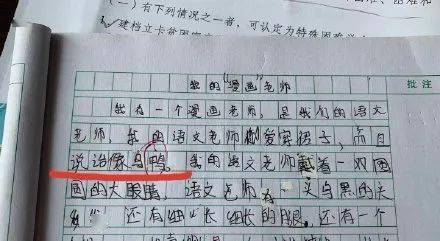 (一)有下列情况之一者,可认定为特殊困难
建档立卡贫困
批注
我的“漫画”老师
我有一个漫画老师,是我们的语文
老师,我的语文老师很爱穿裙子,而且
说话像乌鸭。我的语文老师戴着一双圆
圆的大眼睛,语文老师有一头乌黑的头
还有细长细长的腿,还有一个